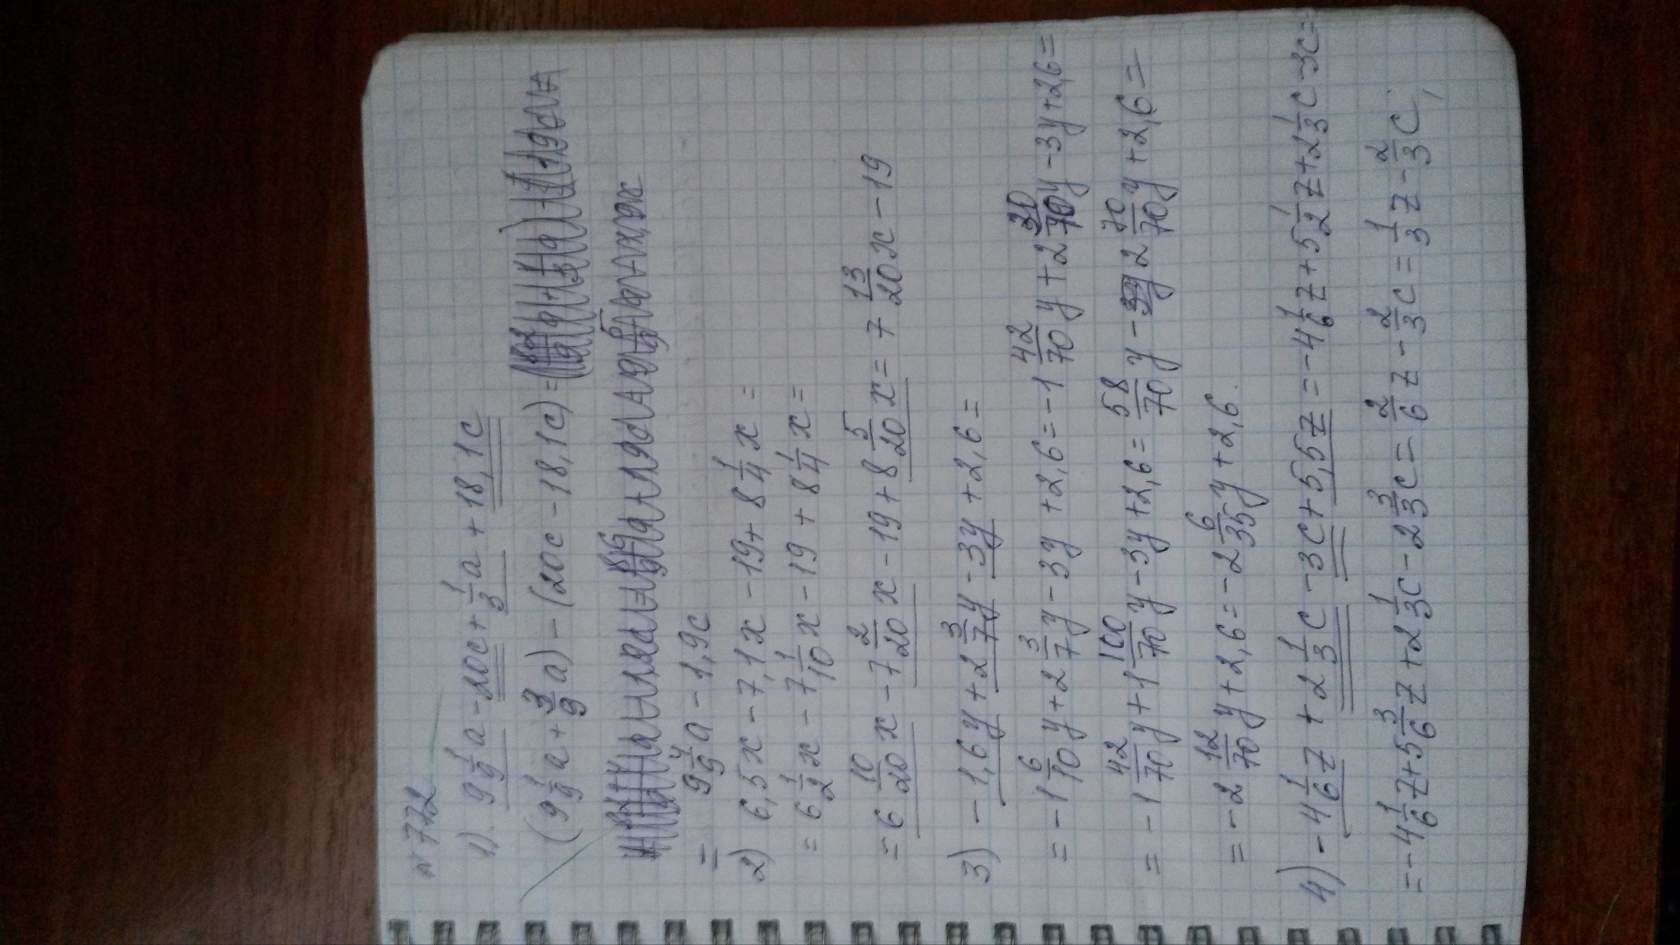 № 772
1). 9 1/9 a - 20c + 1/3 a + 18,1c
(9 1/9 a + 3/9 a) - (20c - 18,1c) =
= 9 4/9 a - 1,9c
2) 6,5x - 7,1x - 19 + 8 1/4 x =
= 6 1/2 x - 7 1/10 x - 19 + 8 1/4 x =
= 6 10/20 x - 7 2/20 x - 19 + 8 5/20 x = 7 13/20 x - 19
3) - 1,6y + 2 3/7 y - 3y + 2,6 =
= - 1 6/10 y + 2 3/7 y - 3y + 2,6 = - 1 42/70 y + 2 30/70 y - 3y + 2,6 =
= - 1 42/70 y + 1 100/70 y - 3y + 2,6 = 58/70 y - 2 70/70 y + 2,6 =
= - 2 12/70 y + 2,6 = - 2 6/35 y + 2,6.
4) - 4 1/6 z + 2 1/3 c - 3c + 5,5z = - 4 1/6 z + 5 1/2 z + 2 1/3 c - 3c =
= - 4 1/6 z + 5 3/6 z + 2 1/3 c - 2 3/3 c = 2/6 z - 2/3 c = 1/3 z - 2/3 c,